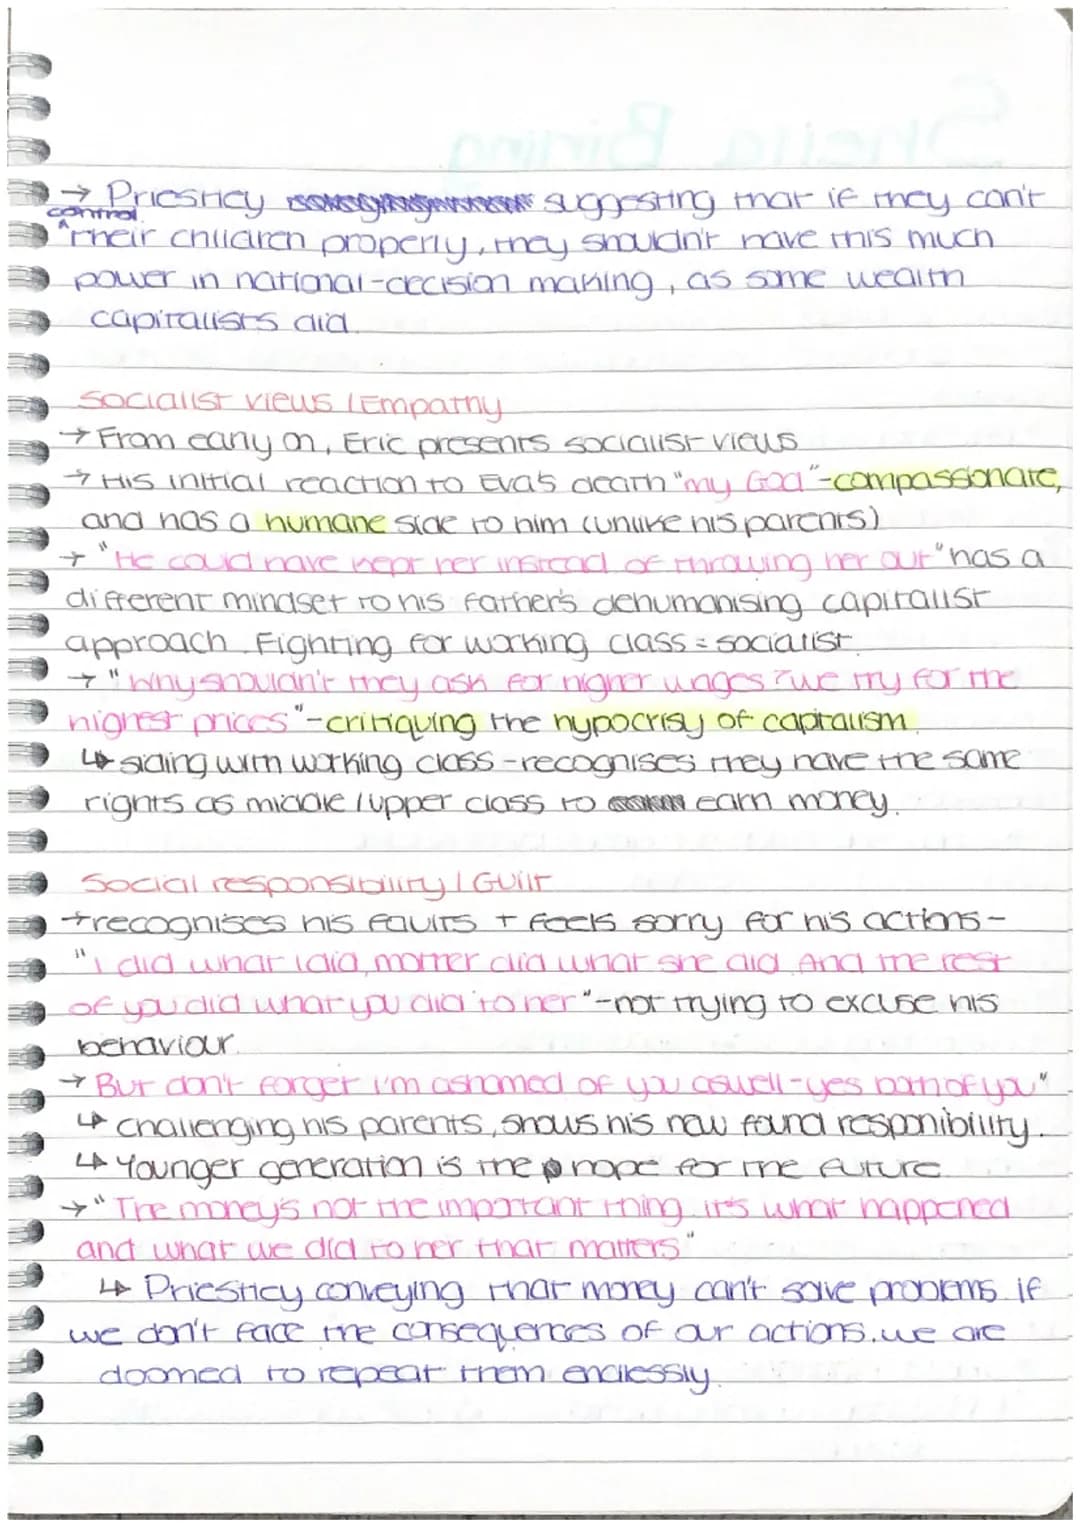 → Priestley suggesting that if they can't
control
^their children properly, they shouldn't have this much
power in national-decision making, as some wealth
capitalists did.
Socialist views / Empathy
→ From early on, Eric presents socialist views
→ His initial reaction to Eva's death "my God" - compassionate,
and has a humane side to him (unlike his parents)
→ "He could have kept her instead of throwing her out" has a
different mindset to his father's dehumanising capitalist
approach. Fighting for working class = socialist.
→ "Why shouldn't they ask for higher wages? We try for the
highest prices" - critiquing the hypocrisy of capitalism.
↳ siding with working class - recognises they have the same
rights as middle / upper class to earn money.
Social responsibility / Guilt
→ recognises his faults + feels sorry for his actions -
"I did what I did, mother did what she did. And the rest
of you did what you did to her" - not trying to excuse his
behaviour.
→ But don't forget I'm ashamed of you aswell - yes both of you"
↳ challenging his parents, shows his new found responibility.
↳ Younger generation is the hope for the future.
→ "The money's not the important thing. it's what happened
and what we did to her that matters"
↳ Priestley conveying that money can't solve problems. if
we don't face the consequences of our actions, we are
doomed to repeat them endlessly.